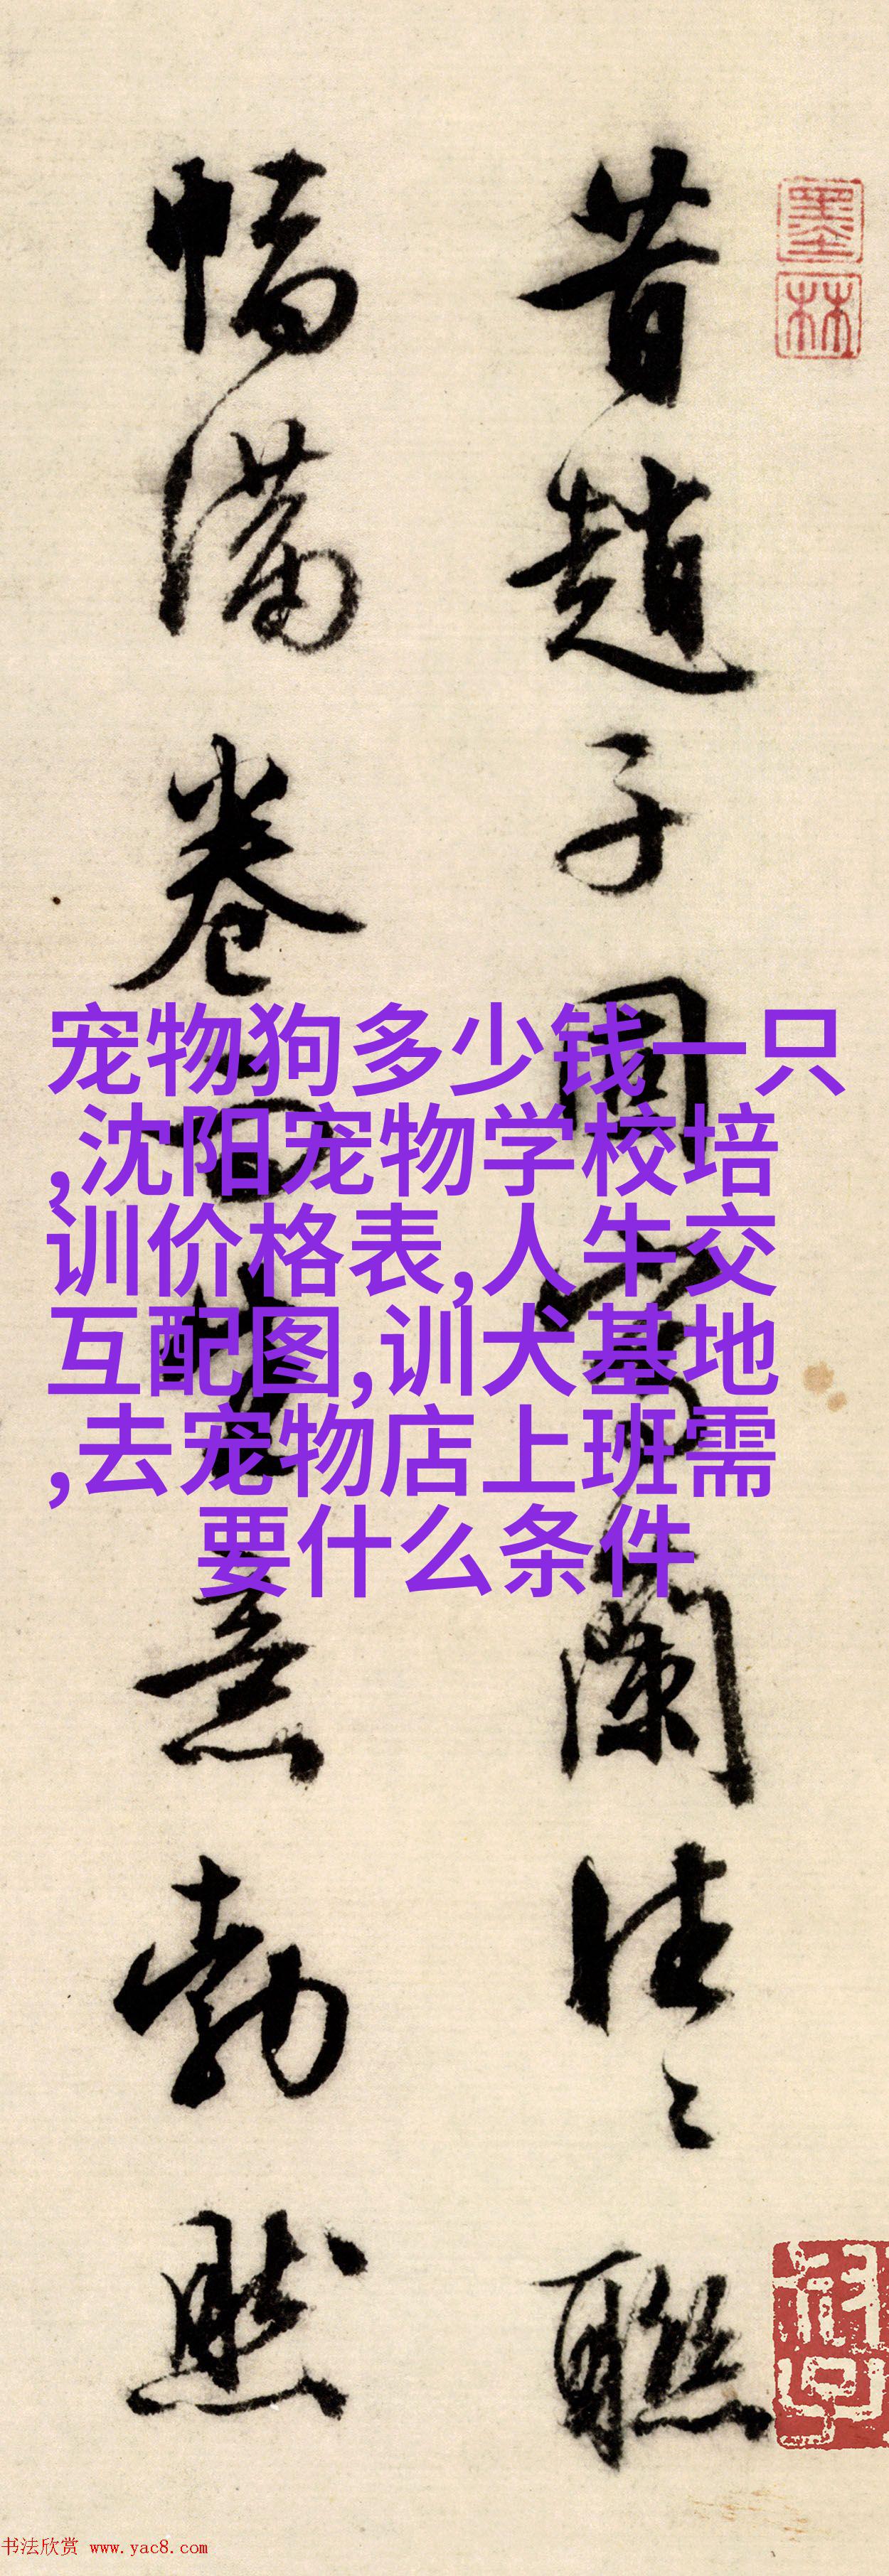 昔趙子固寫蘭往〻聯
幅滿卷而
意勃然
墨
林
宠物狗多少钱一只
,沈阳宠物学校培
训价格表,人牛交
互配图,训犬基地
,去宠物店上班需
要什么条件
书法欣赏 www.yac8.com